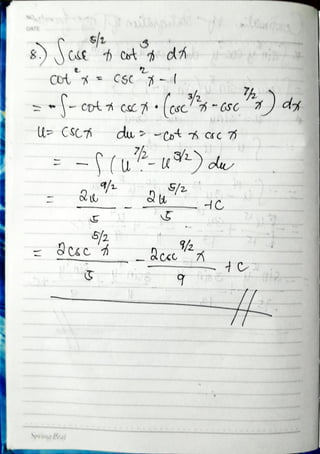 DATE
8.) ∫ csc^5/2 x cot^3 x dx
cot^2 x = csc^2 x - 1
= -∫ -cot x csc x · (csc^3/2 x - csc^7/2 x) dx
u = csc x du = -cot x csc x
= -∫ (u^7/2 - u^3/2) du
= 2u^9/2 / 5 - 2u^5/2 / 5 + C
= 2csc^5/2 x / 5 - 2csc^9/2 x / 9 + C